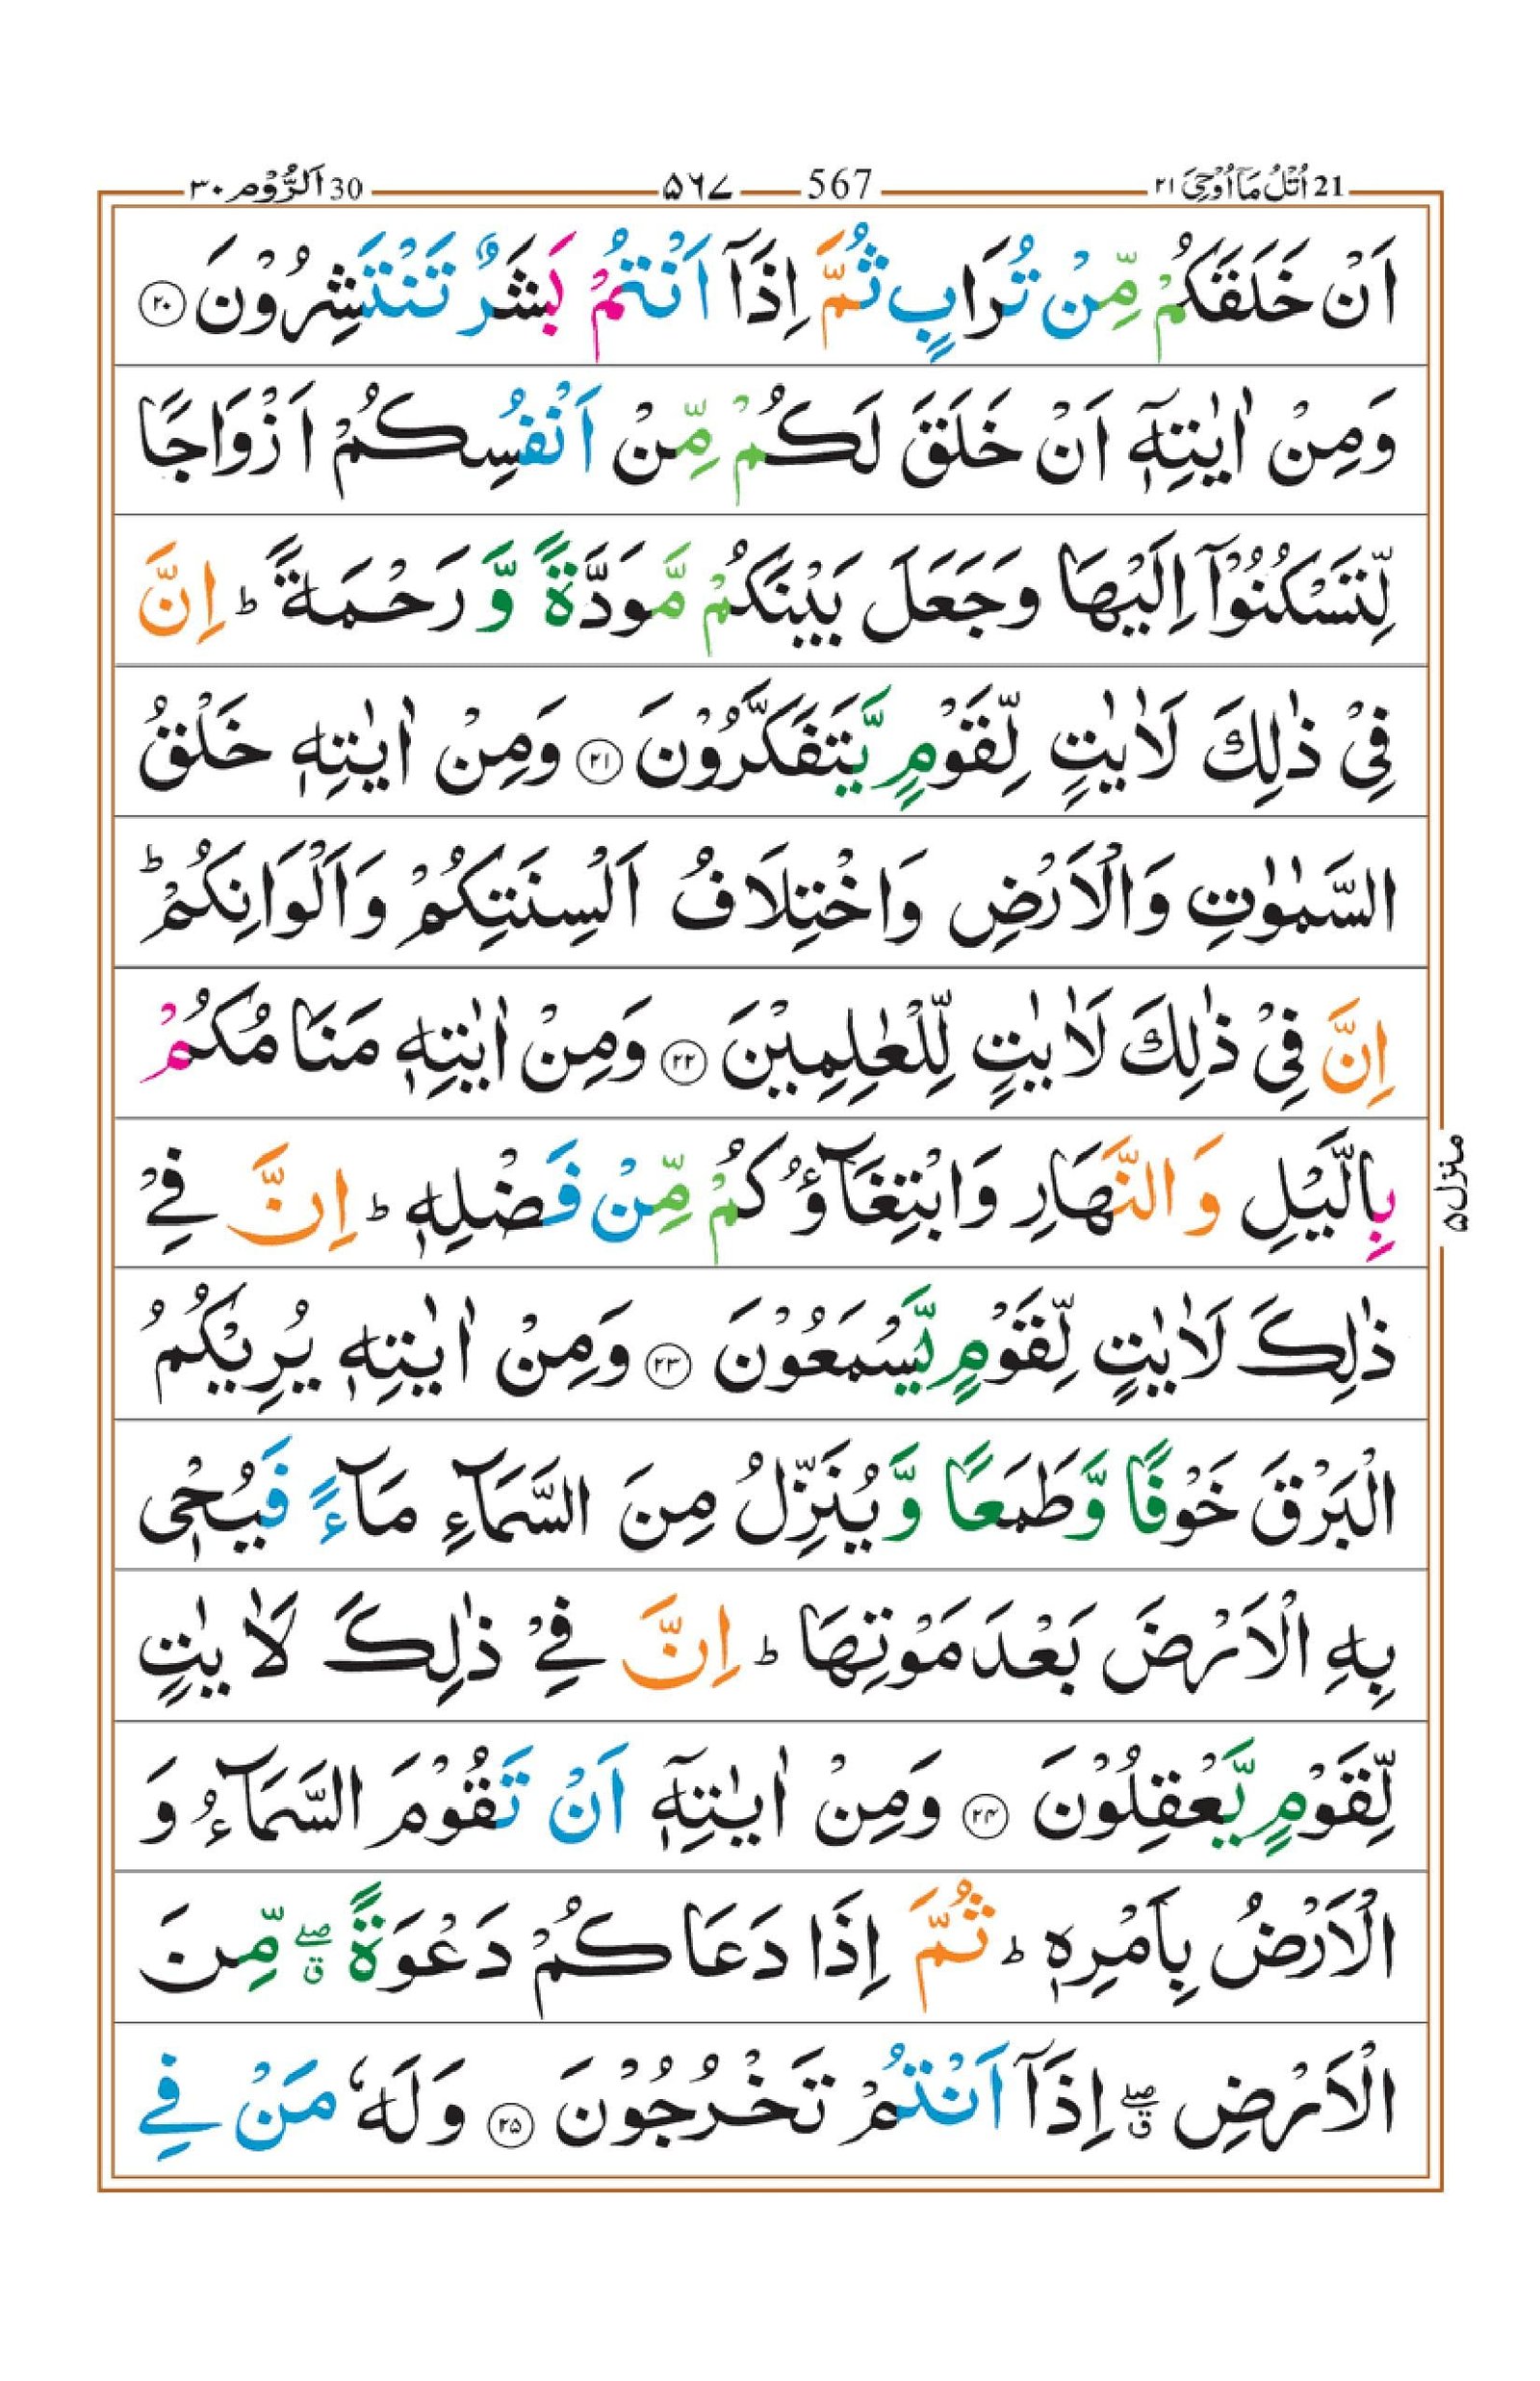 21 اُتْلُ مَاۤ اُوْحِیَ ٢١ 567 ۵۶۷ 30 اَلرُّوْم ٣٠
اَنْ خَلَقَكُمْ مِّنْ تُرَابٍ ثُمَّ اِذَاۤ اَنْتُمْ بَشَرٌ تَنْتَشِرُوْنَ ﴿۲۰﴾
وَمِنْ اٰیٰتِهٖۤ اَنْ خَلَقَ لَكُمْ مِّنْ اَنْفُسِكُمْ اَزْوَاجًا
لِّتَسْكُنُوْۤا اِلَیْهَا وَجَعَلَ بَیْنَكُمْ مَّوَدَّةً وَّ رَحْمَةً ؕ اِنَّ
فِیْ ذٰلِكَ لَاٰیٰتٍ لِّقَوْمٍ یَّتَفَكَّرُوْنَ ﴿۲۱﴾ وَمِنْ اٰیٰتِهٖ خَلْقُ
السَّمٰوٰتِ وَالْاَرْضِ وَاخْتِلَافُ اَلْسِنَتِكُمْ وَاَلْوَانِكُمْ ؕ
اِنَّ فِیْ ذٰلِكَ لَاٰیٰتٍ لِّلْعٰلِمِیْنَ ﴿۲۲﴾ وَمِنْ اٰیٰتِهٖ مَنَامُكُمْ
بِالَّیْلِ وَ النَّهَارِ وَابْتِغَآؤُكُمْ مِّنْ فَضْلِهٖ ؕ اِنَّ فِیْ
ذٰلِكَ لَاٰیٰتٍ لِّقَوْمٍ یَّسْمَعُوْنَ ﴿۲۳﴾ وَمِنْ اٰیٰتِهٖ یُرِیْكُمُ
الْبَرْقَ خَوْفًا وَّطَمَعًا وَّ یُنَزِّلُ مِنَ السَّمَآءِ مَآءً فَیُحْیٖ
بِهِ الْاَرْضَ بَعْدَ مَوْتِهَا ؕ اِنَّ فِیْ ذٰلِكَ لَاٰیٰتٍ
لِّقَوْمٍ یَّعْقِلُوْنَ ﴿۲۴﴾ وَمِنْ اٰیٰتِهٖۤ اَنْ تَقُوْمَ السَّمَآءُ وَ
الْاَرْضُ بِاَمْرِهٖ ؕ ثُمَّ اِذَا دَعَاكُمْ دَعْوَةً ۖق مِّنَ
الْاَرْضِ ۖق اِذَاۤ اَنْتُمْ تَخْرُجُوْنَ ﴿۲۵﴾ وَلَهٗ مَنْ فِی
منزل ۵